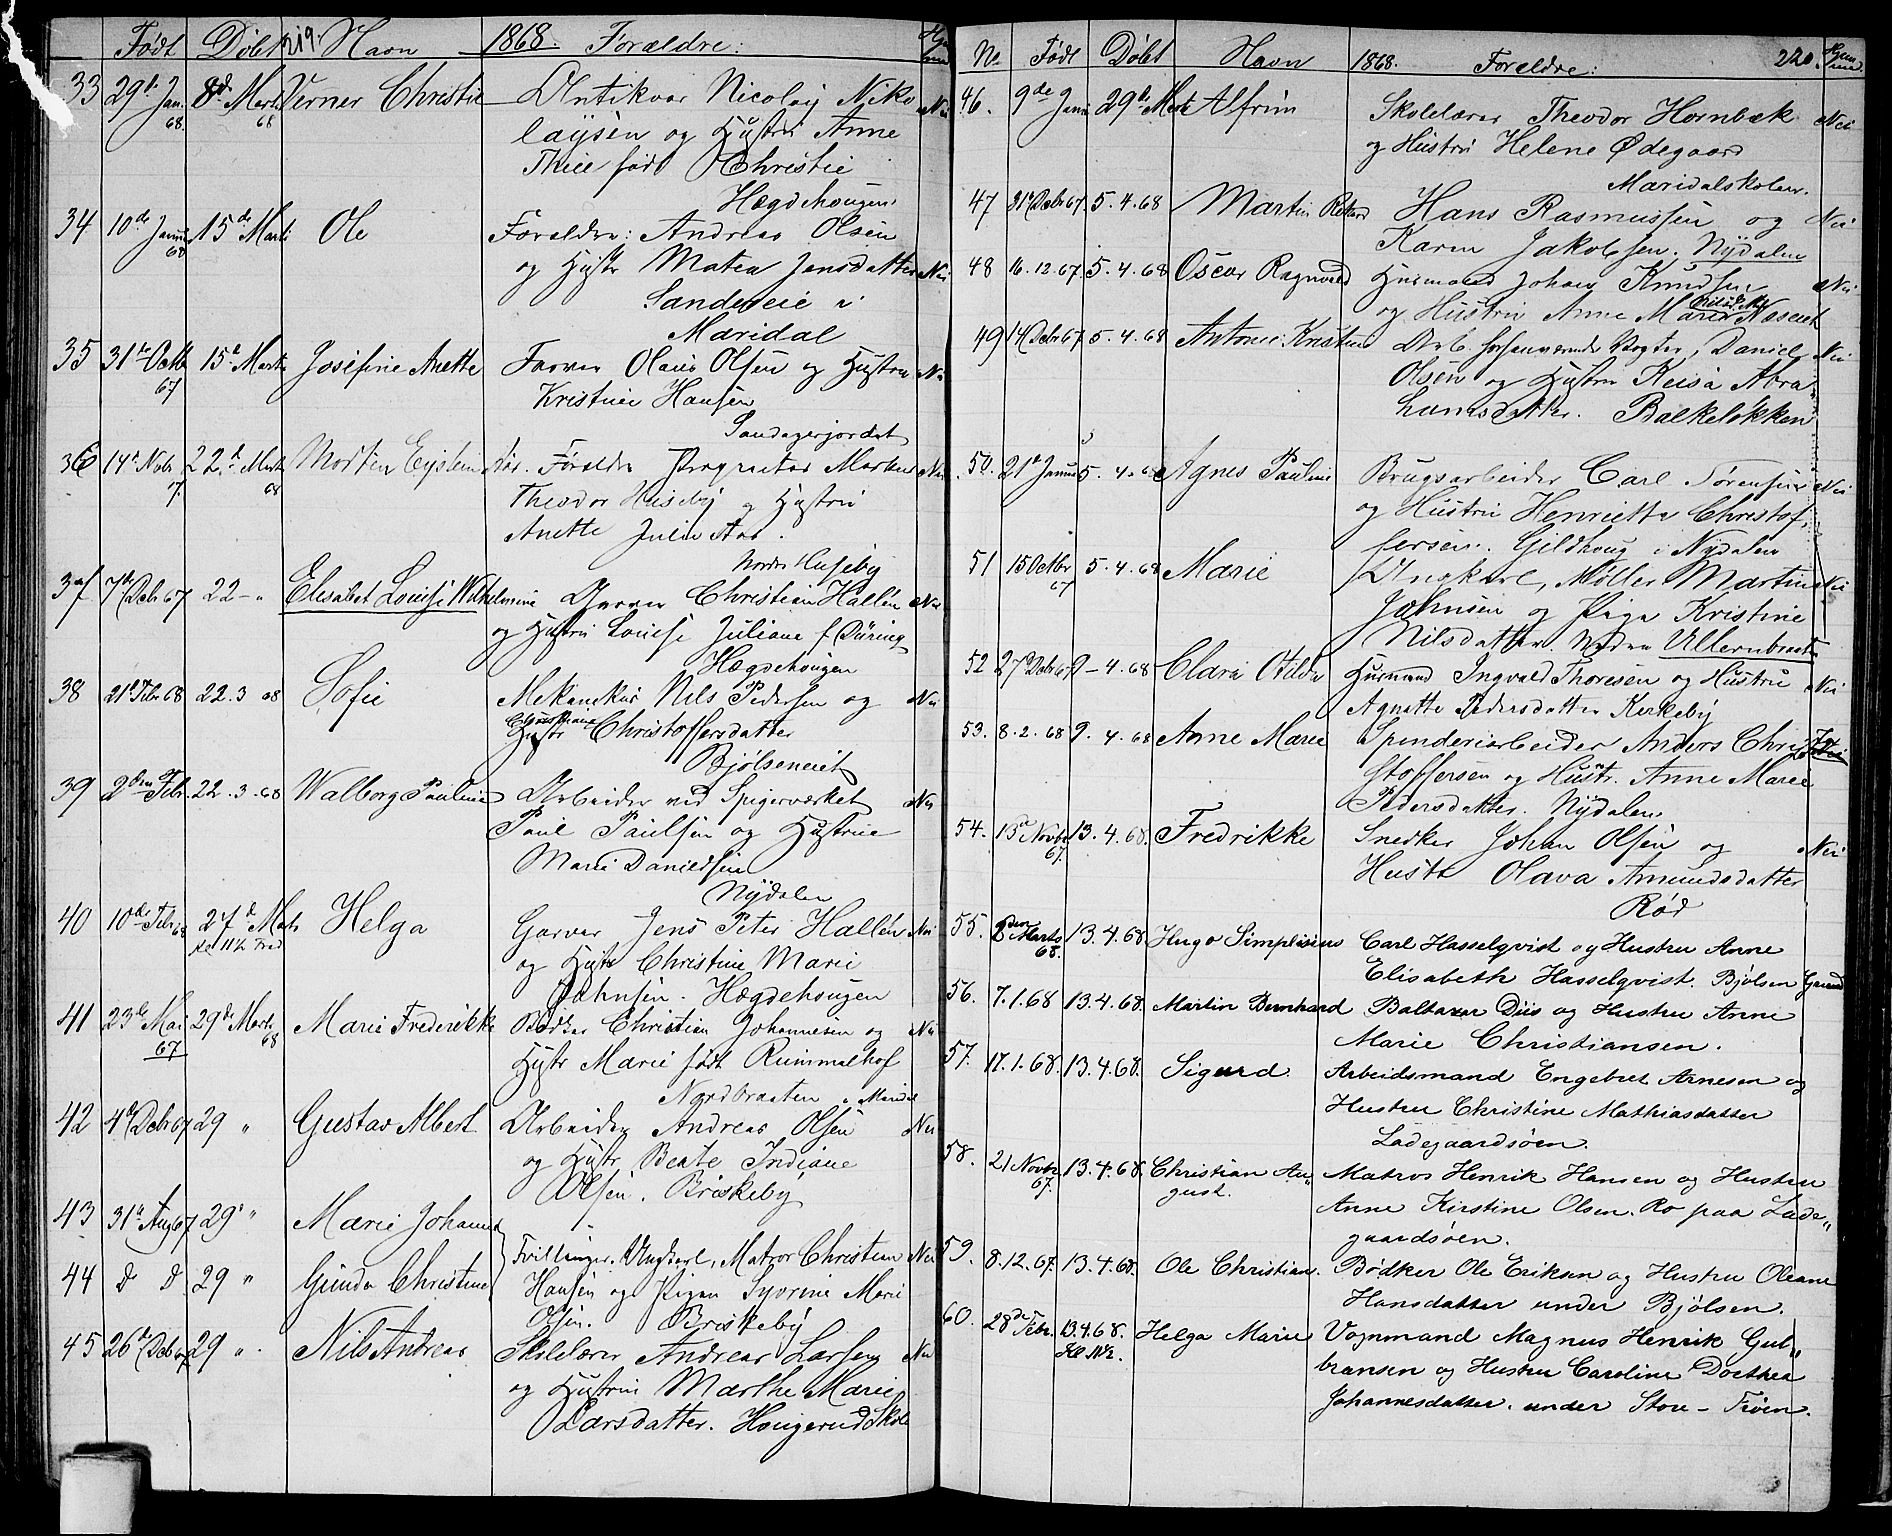 Født Døbt 219. Navn 1868. Forældre:
33 29de Jan. 68. 8d Marts 68 Verner Christie Antikvar Nicolay Niko Nei
laysen og Hustru Anne
Thee født Christie
Hægdehougen.
34 10de Januar 68 15de Marts Ole Forældre: Andreas Olsen
og Hustr Matea Jensdatter Nei
Sandeveie i
Maridal
35 31te Octb 67 15d Marts Josefine Anette Farver Olaus Olsen og Hustru Nei
Kristine Hansen
Sandagerjordet
36 14d Novbr 67. 22d Marts 68 Morten Eystein Forældre Proprietær Morten Nei
Theodor Huseby og Hustru
Anette Julie Aas.
Nordre Huseby
37 7de Debr 67 22 - " Elisabet Louise Wilhelmine Garver Christian Hallén Nei
og Hustru Louise Juliane f. Düring
Hægdehougen
38 21d Febr 68 22.3 68 Sofie Mekanikus Nils Pedersen og Nei
Hustr Christoffersdatter
Bjølseneiet
39 2den Febr. 22.3.68 Walborg Pauline Arbeider ved Spigerværket Nei
Paul Paulsen og Hustrue
Marie Danielsen
Nydalen
40 10de Febr 68 27d Marts Helga Garver Jens Peter Hallén Nei
og Hustr Christine Marie
Jahnsen. Hægdehougen
41 23de Mai 67 29de Marts 68 Marie Frederikke Bødker Christian Johannesen og Nei
Hustr Marie født Rummelhof
Nordbraaten i Maridal
42 4de Debr 67 29 " Gustav Albert Arbeider Andreas Olsen Nei
og Hustr Beate Indiane
Olsen. Briskeby
43 31te Aug 67 29 " Marie Johanne
Tvillinger. Ungkarl, Matros Christian Nei
44 d d 29 " Gunda Christine Hansen og Pigen Syvrine Marie
Olsen. Briskeby
45 26de Debr 67 29 " Nils Andreas Skolelærer Andreas Larsen Nei
og Hustru Marthe Marie
Larsdatter. Hougerud Skole
No Født Døbt Navn 1868. Forældre: 220
46. 9de Janu 29de Marts Alfrim Skolelærer Theodor Hornbæk Nei
og Hustru Helene Ødegaard
Maridalskolen.
47 21de Debr 67. 5.4.68 Martin Rikard Hans Rasmussen og Nei
Karen Jakobsen. Nydalen
48 16.12.67. 5.4.68 Oscar Ragnvald Husmand Johan Knudsen Nei
og Hustru Anne Marie Næseiet
49 14 Debr 67 5.4.68 Antonie Kristine Arb. forhenværende Vogter, Daniel Nei
Olsen og Hustru Keisa Abra
hamsdatter. Bakkeløkken
50. 21d Januar 5.4.68 Agnes Pauline Brugsarbeider Carl Sørensen Nei
og Hustru Henriette Christof
fersen. Gildhoug i Nydalen
51 15 Octbr 67 5.4.68 Marie Ungkarl, Møller Martin Nei
Johnsen og Pige Kristine
Nilsdatter. Nedre Ullernbraaten
52 27d Debr 67 9-4.68 Clara Otilde Husmand Ingvald Thoresen og Hustru Nei
Agnette Pedersdatter Kirkeby
53. 8.2.68 9.4.68 Anne Marie Spinderiarbeider Anders Chri
stoffersen og Hustr. Anne Marie
Pedersdatter. Nydalen
54. 15de Novbr 67. 13.4.68. Fredrikke Snedker Johan Olsen og Nei
Hustr Olava Amundsdatter
Rød
55. 2den Marts 68. 13.4.68. Hugo Simplisius Carl Hasselqvist og Hustru Anne
Elisabeth Hasselqvist. Bjølsen
56. 7.1.68 13.4.68. Martin Bernhard Baltazar Diis og Hustru Anne
Marie Christiansen.
57. 17.1.68. 13.4.68. Sigurd. Arbeidsmand Engebret Arnesen og
Hustru Christine Mathiasdatter
Ladegaardsøen.
58. 21 Novbr 67. 13.4.68. Christian Au" Matros Henrik Hansen og Hustru
gust. Anne Kirstine Olsen. Ro paa Lade"
gaardsøen.
59. 8.12.67. 13.4.68. Ole Christian. Bødker Ole Eriksen og Hustru Oleane
Hansdatter under Bjølsen.
60. 28de Febr. 13.4.68. Helga Marie Vognmand Magnus Henrik Gul"
bransen og Hustru Caroline Dorthea
Johannesdatter. under Store-Frøen.